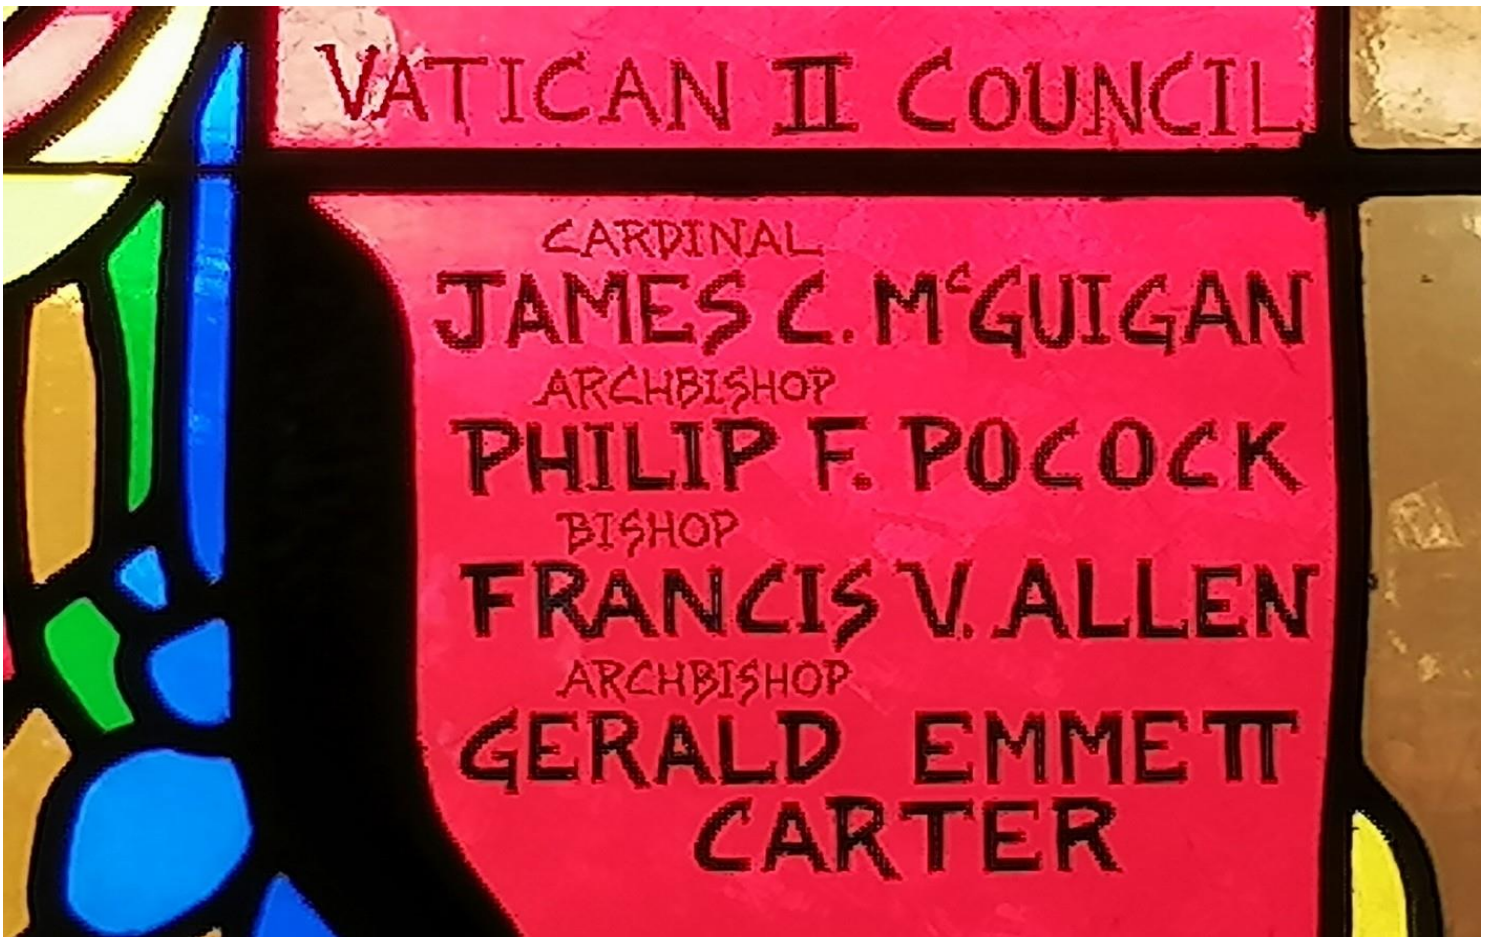 VATICAN II COUNCIL
CARDINAL
JAMES C. McGUIGAN
ARCHBISHOP
PHILIP F. POCOCK
BISHOP
FRANCIS V. ALLEN
ARCHBISHOP
GERALD EMMETT
CARTER